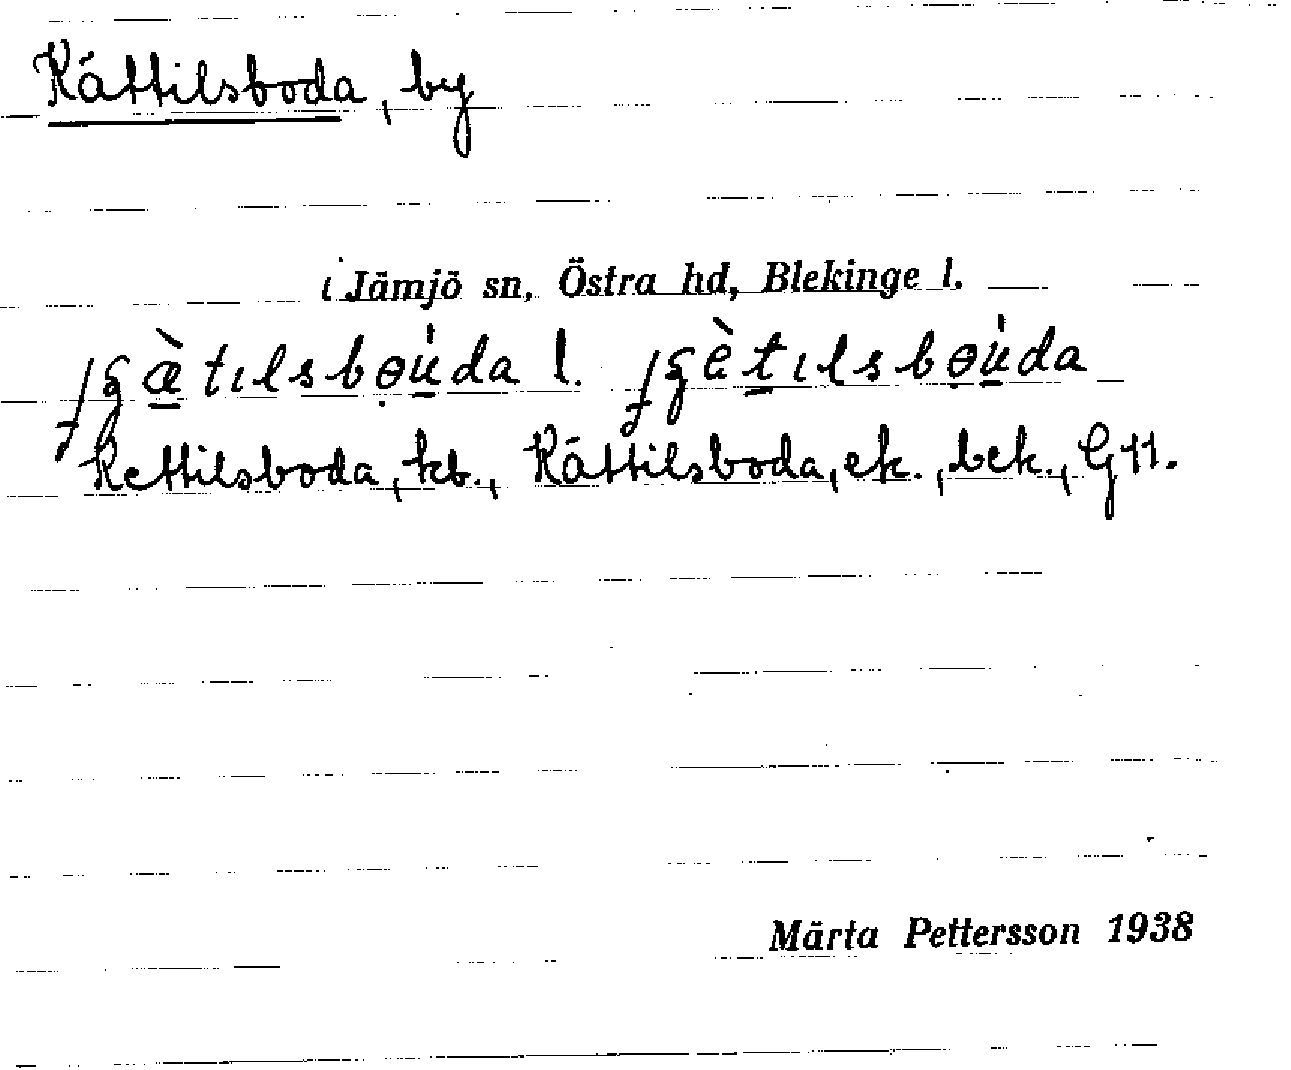 Kättilsboda, by
i Jämjö sn, Östra hd, Blekinge l.
l.
Kettilsboda, kb., Kättilsboda, ek., bek., G11.
Märta Pettersson 1938